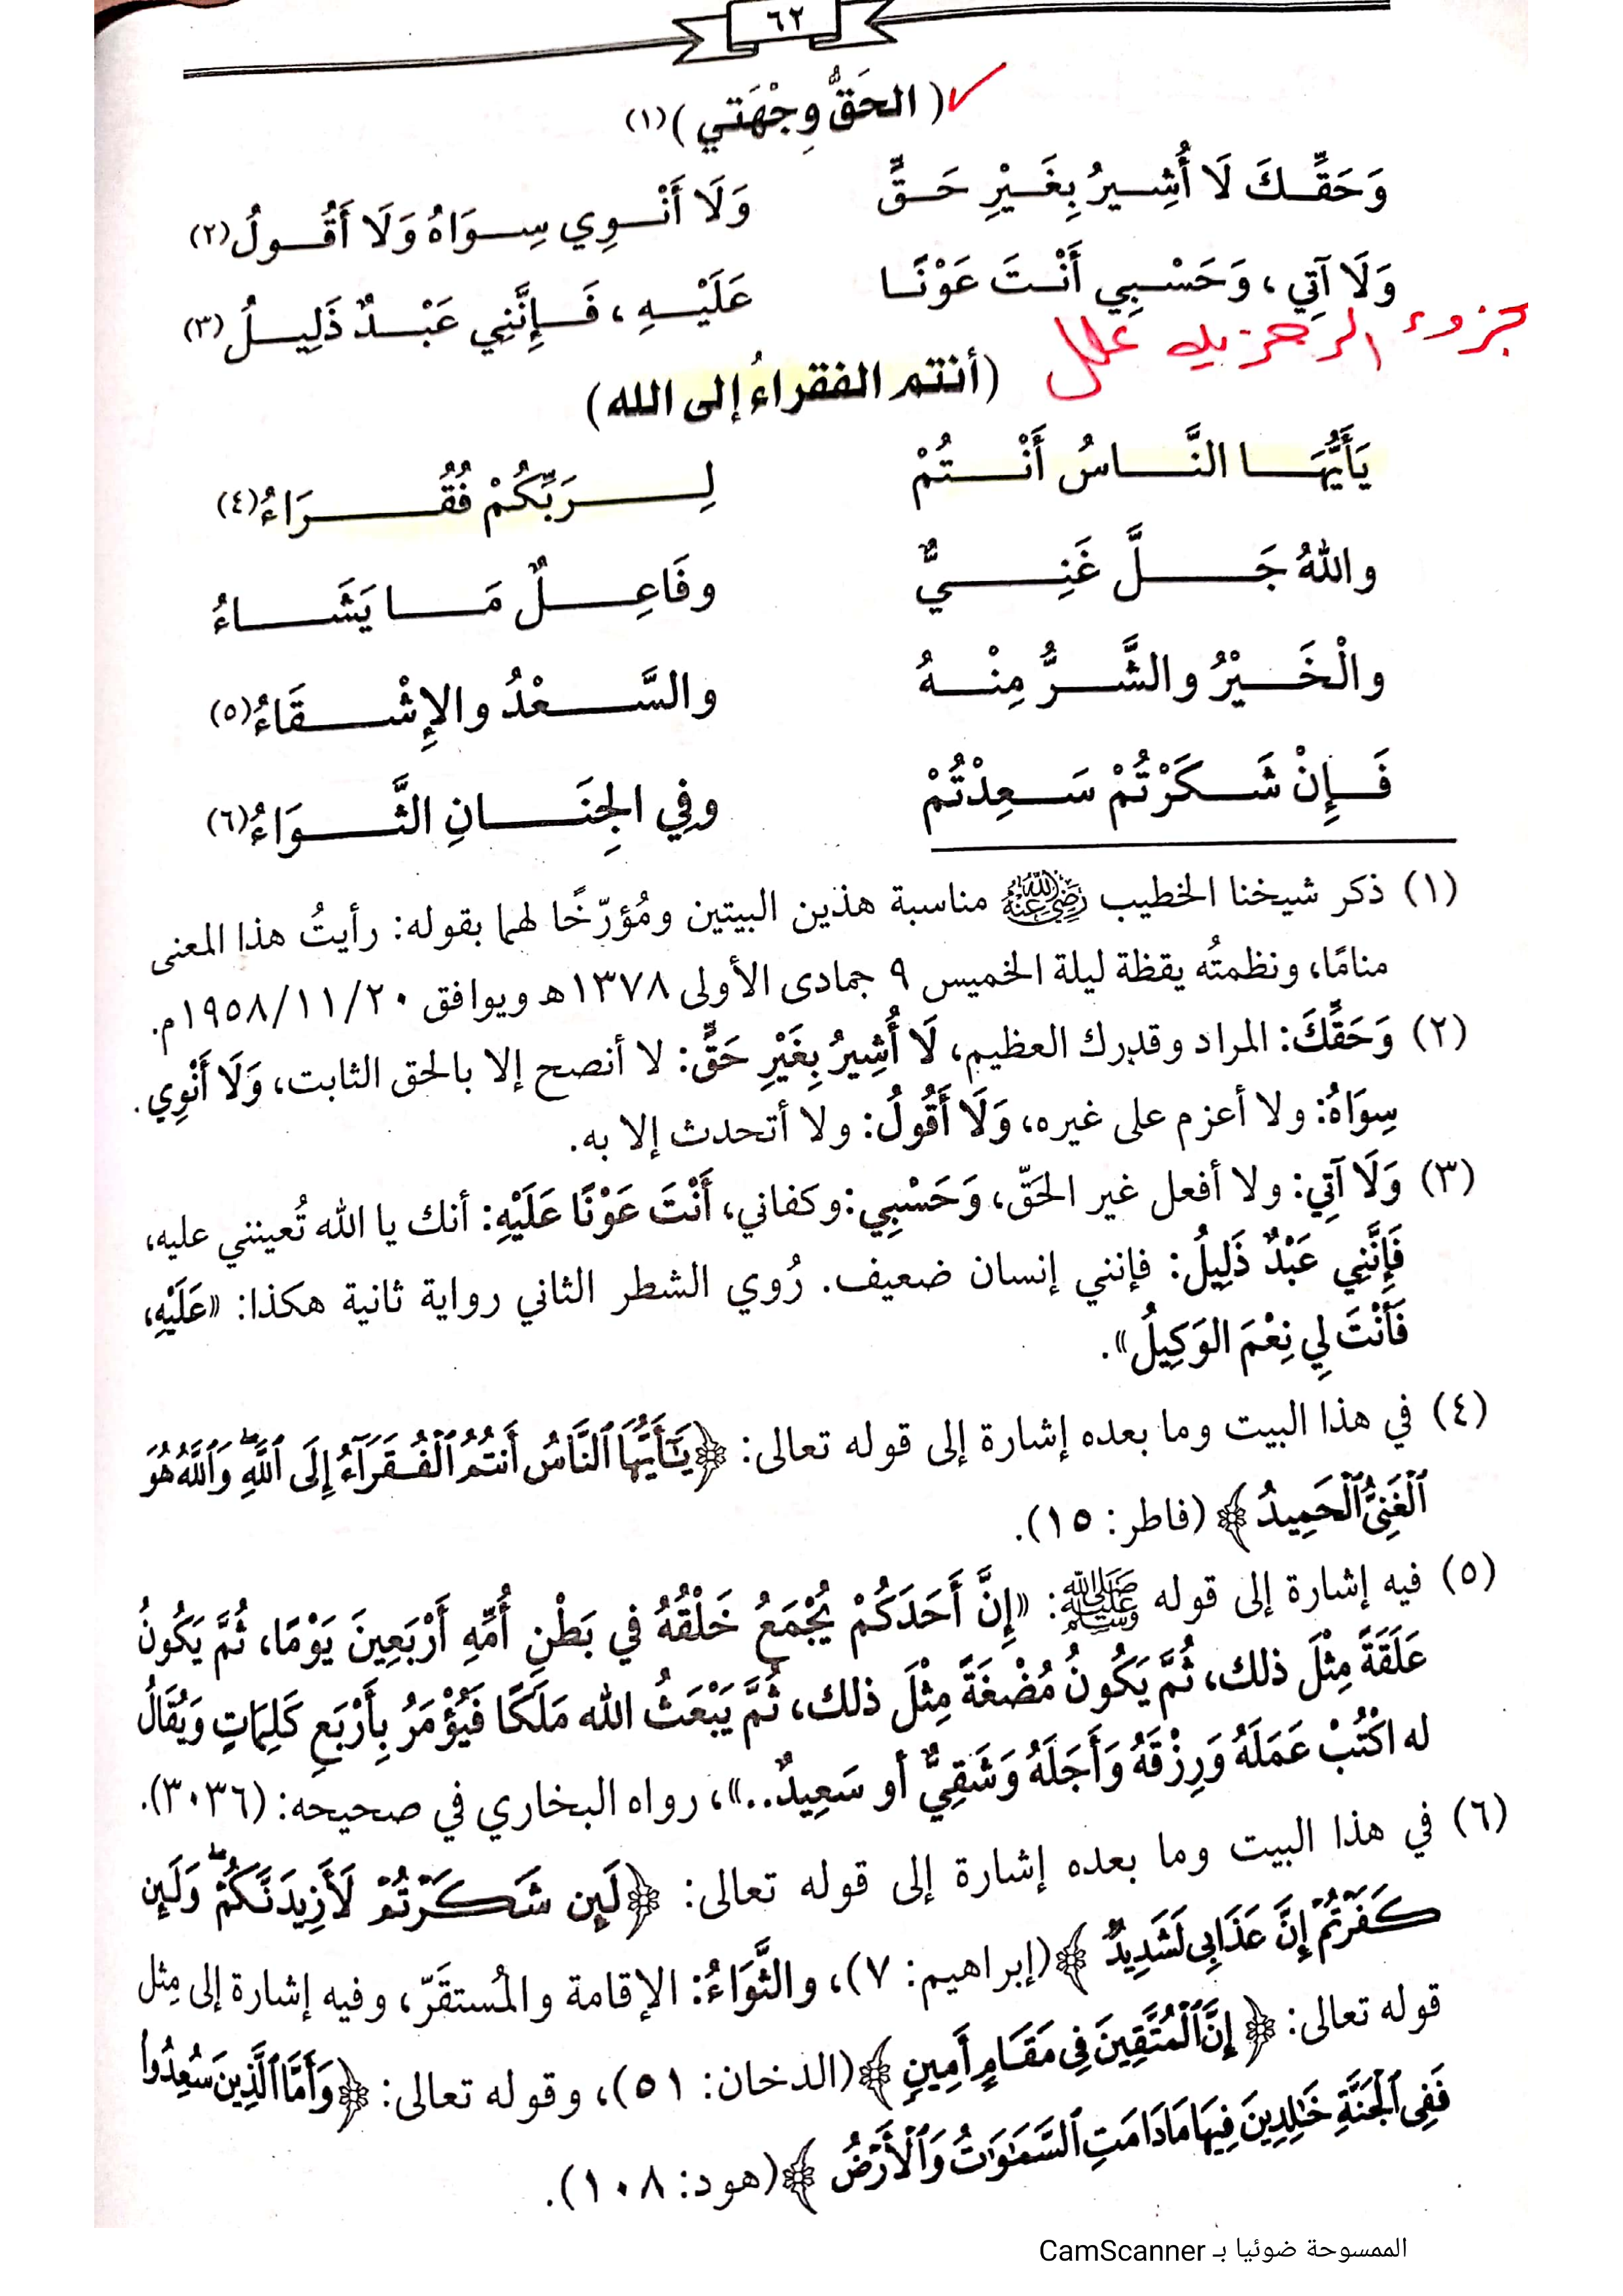 ٦٢
( الحَقُّ وِجْهَتي )(١)
وَحَقِّكَ لَا أُشِيرُ بِغَيْرِ حَقٍّ وَلَا أَنْوِي سِوَاهُ وَلَا أَقُولُ(٢)
وَلَا آتِي ، وَحَسْبِي أَنْتَ عَوْنًا عَلَيْهِ ، فَإِنَّنِي عَبْدٌ ذَلِيلُ(٣)
(أنتم الفقراءُ إلى الله)
يَأَيُّهَا النَّاسُ أَنْتُمْ لِرَبِّكُمْ فُقَرَاءُ(٤)
واللهُ جَلَّ غَنِيٌّ وفَاعِلٌ مَا يَشَاءُ
والْخَيْرُ والشَّرُّ مِنْهُ والسَّعْدُ والإِشْقَاءُ(٥)
فَإِنْ شَكَرْتُمْ سَعِدْتُمْ وفِي الجِنَانِ الثَّوَاءُ(٦)
(١) ذكر شيخنا الخطيب رَضِيَ اللَّهُ عَنْهُ مناسبة هذين البيتين ومُؤرّخًا لهما بقوله: رأيتُ هذا المعنى
منامًا، ونظمتُه يقظة ليلة الخميس ٩ جمادى الأولى ١٣٧٨هـ ويوافق ١٩٥٨/١١/٢٠م.
(٢) وَحَقِّكَ: المراد وقدرك العظيم، لَا أُشِيرُ بِغَيْرِ حَقٍّ: لا أنصح إلا بالحق الثابت، وَلَا أَنْوِي
سِوَاهُ: ولا أعزم على غيره، وَلَا أَقُولُ: ولا أتحدث إلا به.
(٣) وَلَا آتِي: ولا أفعل غير الحَقّ، وَحَسْبِي:وكفاني، أَنْتَ عَوْنًا عَلَيْهِ: أنك يا الله تُعينني عليه،
فَإِنَّنِي عَبْدٌ ذَلِيلُ: فإنني إنسان ضعيف. رُوي الشطر الثاني رواية ثانية هكذا: «عَلَيْهِ،
فَأَنْتَ لِي نِعْمَ الوَكِيلُ».
(٤) في هذا البيت وما بعده إشارة إلى قوله تعالى: ﴿يَٰٓأَيُّهَا ٱلنَّاسُ أَنتُمُ ٱلْفُقَرَآءُ إِلَى ٱللَّهِۖ وَٱللَّهُ هُوَ
ٱلْغَنِىُّ ٱلْحَمِيدُ ﴾ (فاطر: ١٥).
(٥) فيه إشارة إلى قوله ﷺ: «إِنَّ أَحَدَكُمْ يُجْمَعُ خَلْقُهُ في بَطْنِ أُمِّهِ أَرْبَعِينَ يَوْمًا، ثُمَّ يَكُونُ
عَلَقَةً مِثْلَ ذلك، ثُمَّ يَكُونُ مُضْغَةً مِثْلَ ذلك، ثُمَّ يَبْعَثُ الله مَلَكًا فَيُؤْمَرُ بِأَرْبَعِ كَلِمَاتٍ وَيُقَالُ
له اكْتُبْ عَمَلَهُ وَرِزْقَهُ وَأَجَلَهُ وَشَقِيٌّ أو سَعِيدٌ..»، رواه البخاري في صحيحه: (٣٠٣٦).
(٦) في هذا البيت وما بعده إشارة إلى قوله تعالى: ﴿لَئِن شَكَرْتُمْ لَأَزِيدَنَّكُمْۖ وَلَئِن
كَفَرْتُمْ إِنَّ عَذَابِى لَشَدِيدٌ ﴾(إبراهيم: ٧)، والثَّوَاءُ: الإقامة والمُستقَرّ، وفيه إشارة إلى مِثل
قوله تعالى: ﴿ إِنَّ ٱلْمُتَّقِينَ فِى مَقَامٍ أَمِينٍ ﴾(الدخان: ٥١)، وقوله تعالى: ﴿وَأَمَّا ٱلَّذِينَ سُعِدُوا۟
فَفِى ٱلْجَنَّةِ خَٰلِدِينَ فِيهَا مَا دَامَتِ ٱلسَّمَٰوَٰتُ وَٱلْأَرْضُ ﴾(هود: ١٠٨).
الممسوحة ضوئيا بـ CamScanner